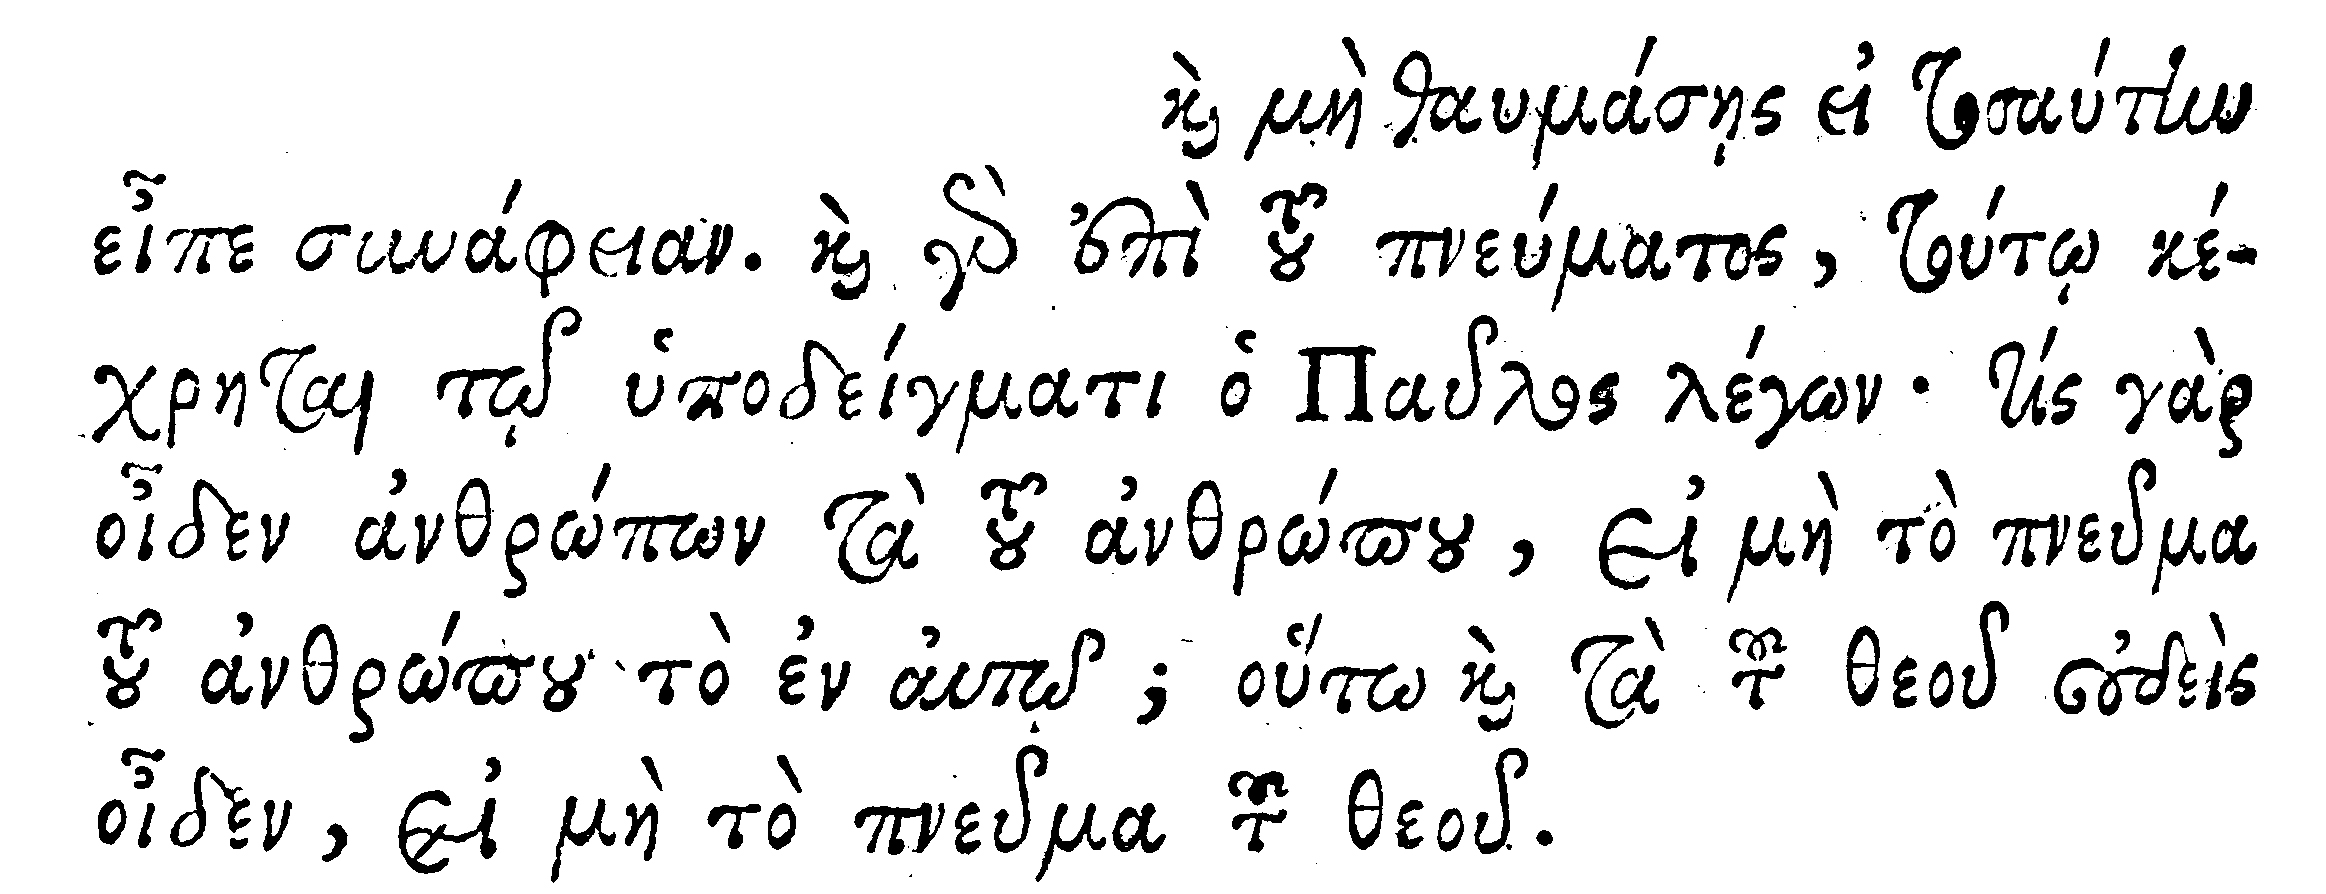 καὶ μὴ θαυμάσῃς εἰ τοσαύτην
εἶπε συνάφειαν. καὶ γὰρ ἐπὶ τοῦ πνεύματος, τούτῳ κέ-
χρηται τῷ ὑποδείγματι ὁ Παῦλος λέγων· τίς γὰρ
οἶδεν ἀνθρώπων τὰ τοῦ ἀνθρώπου, εἰ μὴ τὸ πνεῦμα
τοῦ ἀνθρώπου τὸ ἐν αὐτῷ; οὕτω καὶ τὰ τοῦ θεοῦ οὐδεὶς
οἶδεν, εἰ μὴ τὸ πνεῦμα τοῦ θεοῦ.